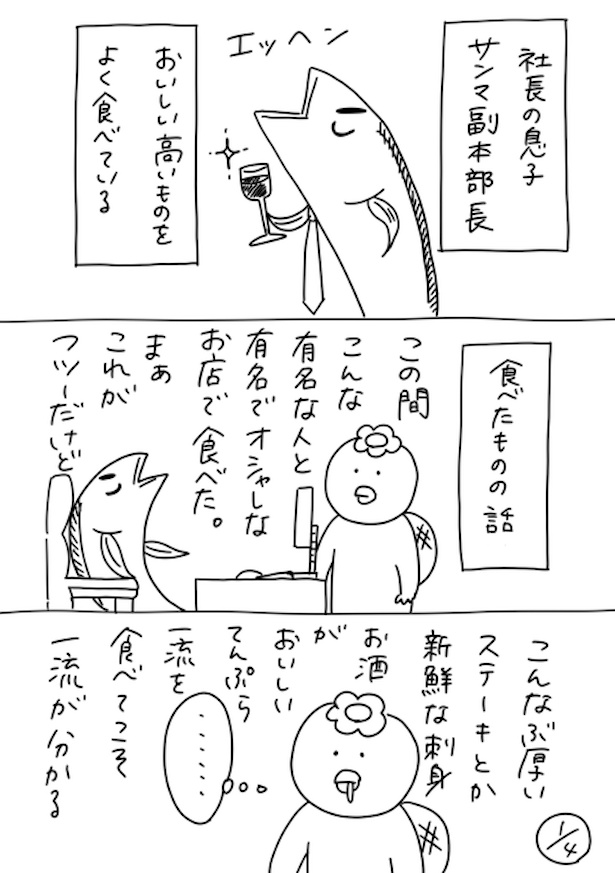 社長の息子
サンマ副本部長
エッヘン
おいしい高いものを
よく食べている
食べたものの話
この間
こんな
有名な人と
有名でオシャレな
お店で食べた。
まぁ
これが
フツーだけど
こんなぶ厚い
ステーキとか
新鮮な刺身
お酒
が
おいしい
てんぷら
一流を
食べてこそ
一流が分かる
・・・・・・
1/4